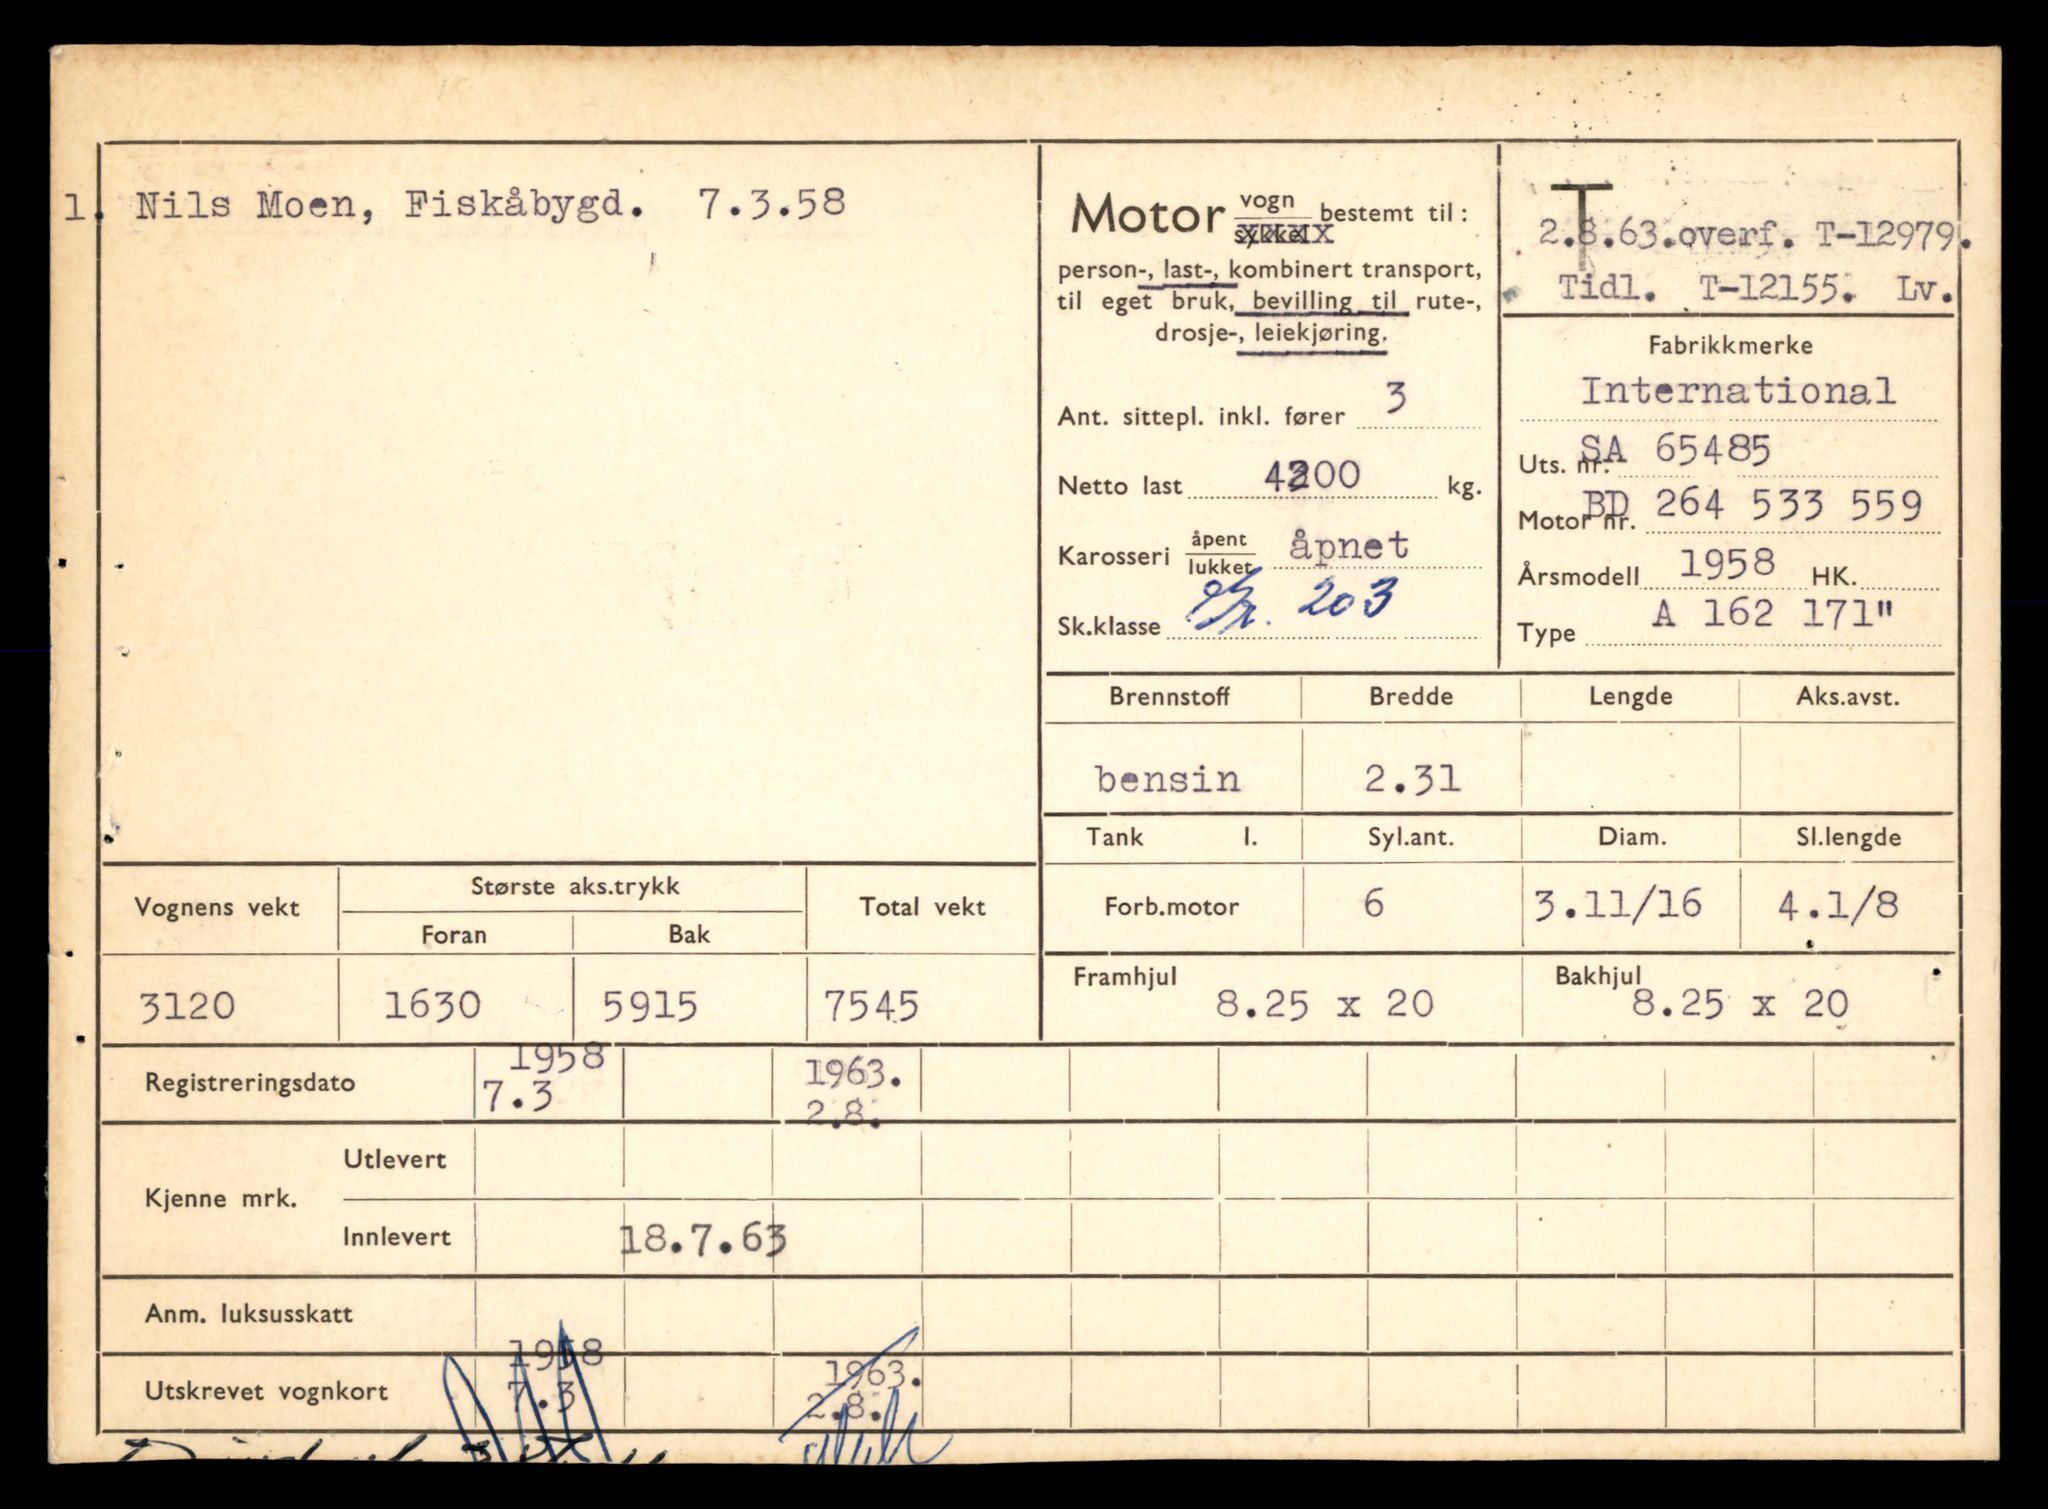 1. Nils Moen, Fiskåbygd. 7.3.58
Motor vogn bestemt til:
sykkel
person-, last-, kombinert transport,
til eget bruk, bevilling til rute-,
drosje-, leiekjøring.
Ant. sittepl. inkl. fører 3
Netto last 4300 kg.
Karosseri åpent åpnet
lukket
Sk.klasse 203
T
2.8.63.overf. T-12979.
Tidl. T-12155. Lv.
Fabrikkmerke
International
Uts. nr. SA 65485
Motor nr. BD 264 533 559
Årsmodell 1958 HK.
Type A 162 171"
Brennstoff Bredde Lengde Aks.avst.
bensin 2.31
Tank l. Syl.ant. Diam. Sl.lengde
Forb.motor 6 3.11/16 4.1/8
Framhjul Bakhjul
8.25 x 20 8.25 x 20
Vognens vekt Største aks.trykk Total vekt
Foran Bak
3120 1630 5915 7545
1958 1963.
Registreringsdato 7.3 2.8.
Utlevert
Kjenne mrk.
Innlevert 18.7.63
Anm. luksusskatt
1958 1963.
Utskrevet vognkort 7.3 2.8.